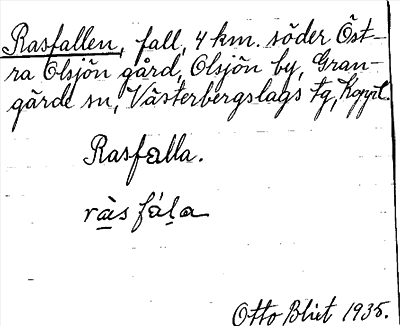 Rasfallen, fall, 4 km. söder Öst-
ra Olsjön gård, Olsjön by, Gran-
gärde sn, Västerbergslags tg,
Rasfalla.
ràs fála
Otto Blixt 1935.